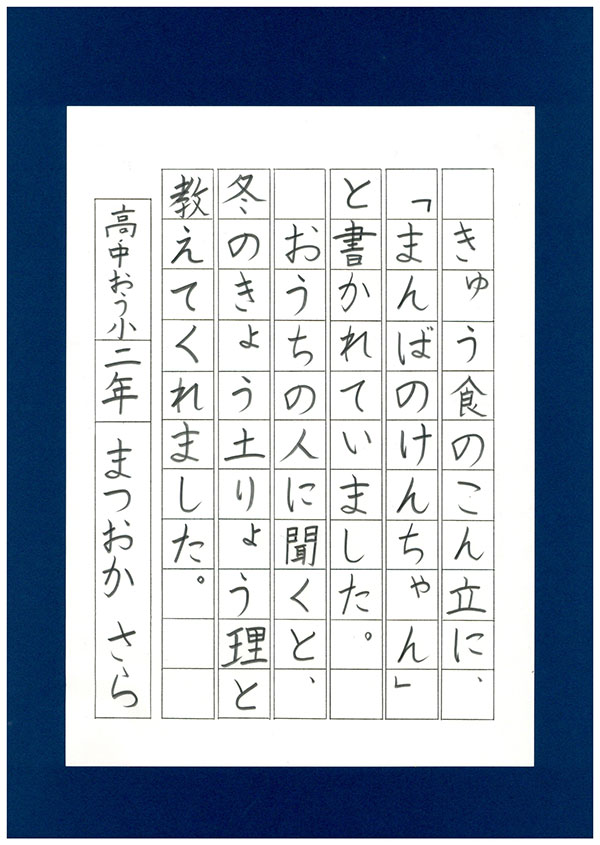 きゅう食のこん立に、
「まんばのけんちゃん」
と書かれていました。
おうちの人に聞くと、
冬のきょう土りょう理と
教えてくれました。
高中おう小 二年 まつおか さら